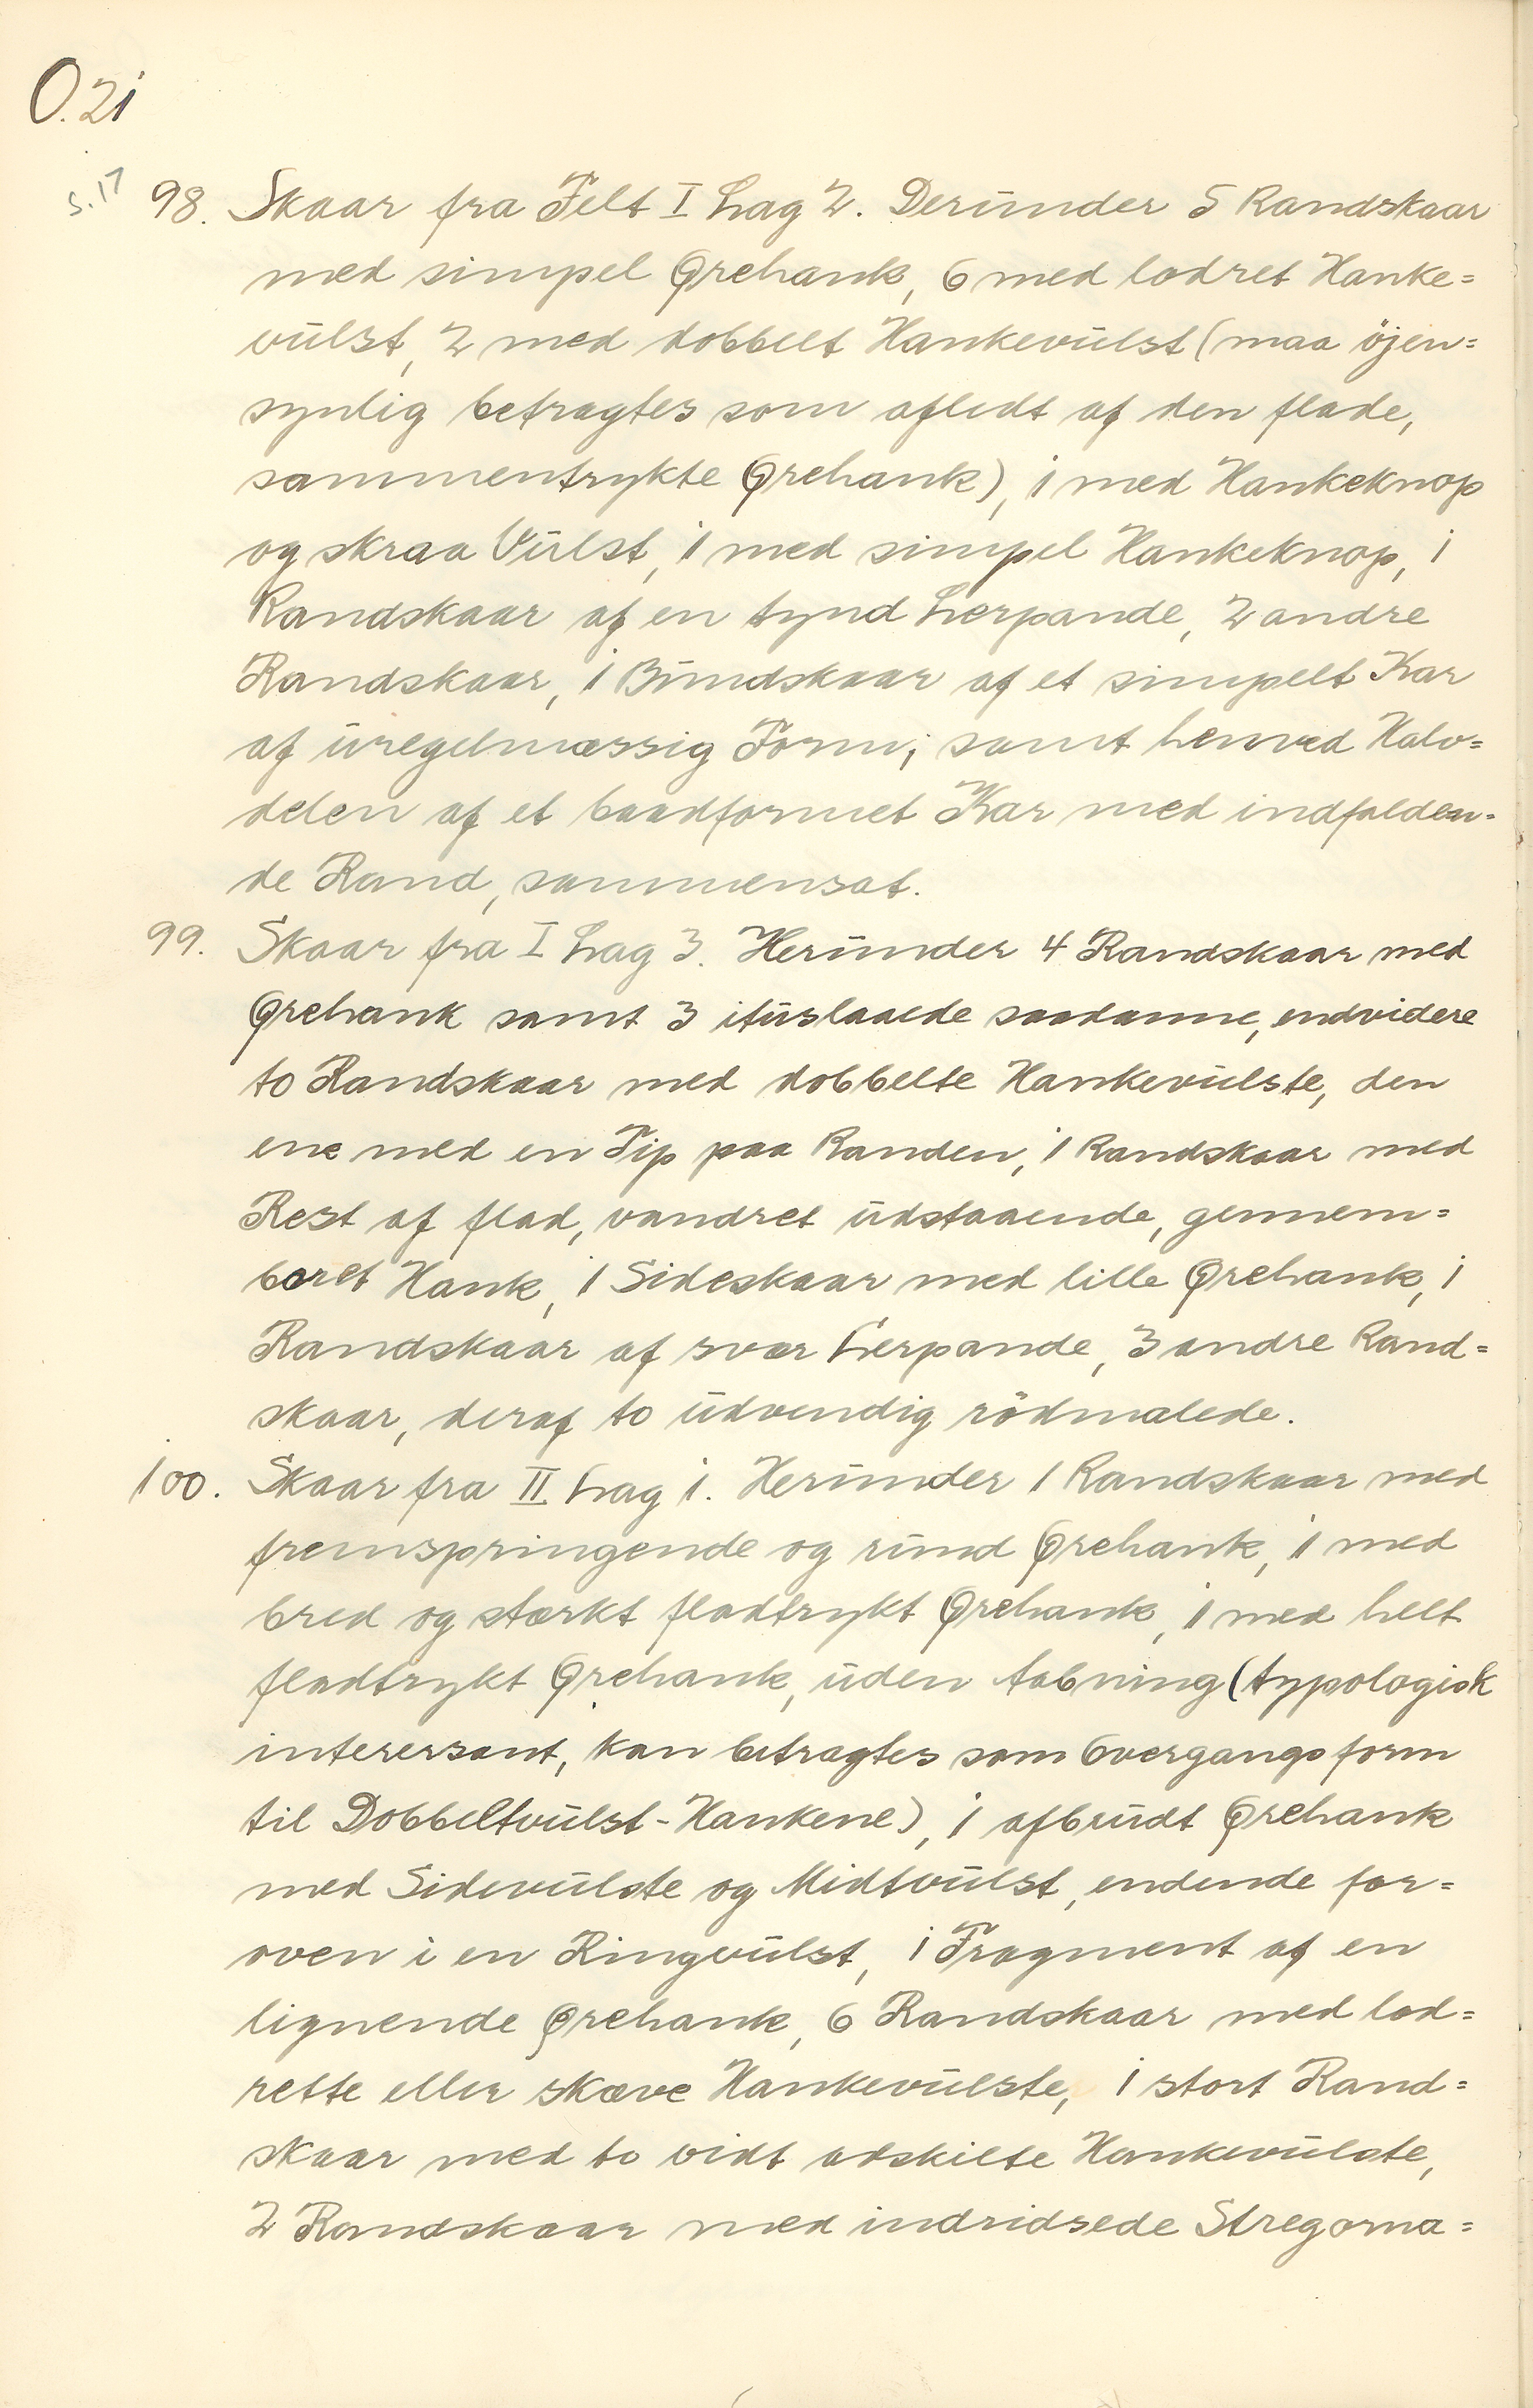 O.21
S.17
98. Skaar fra Felt I Lag 2. Derunder 5 Randskaar
med simpel Ørehank, 6 med lodret Hanke=
vulst, 2 med dobbelt Hankevulst (maa öjen=
synlig betragtes som afledt af den flade,
sammentrykte Ørehank), 1 med Hankeknop
og skraa Vulst, 1 med simpel Hankeknop, 1
Randskaar af en tynd Lerpande, 2 andre
Randskaar, 1 Bundskaar af et simpelt Kar
af uregelmæssig Form; samt henved Halv=
delen af et baadformet Kar med indfalden=
de Rand, sammensat.
99. Skaar fra I Lag 3. Herunder 4 Randskaar med
Ørehank samt 3 ituslaaede saadanne, endvidere
to Randskaar med dobbelte Hankevulste, den
ene med en Tip paa Randen, 1 Randskaar med
Rest af flad, vandret udstaaende, gennem=
boret Hank, 1 Sideskaar med lille Ørehank, 1
Randskaar af svær Lerpande, 3 andre Rand=
skaar, deraf to udvendig rödmalede.
100. Skaar fra II Lag 1. Herunder 1 Randskaar med
fremspringende og rund Ørehank, 1 med
bred og stærkt fladtrykt Ørehank, 1 med helt
fladtrykt Ørehank, uden Aabning (typologisk
interessant, kan betragtes som Overgangsform
til Dobbeltvulst-Hankene), 1 afbrudt Ørehank
med Sidevulste og Midtvulst, endende for=
oven i en Ringvulst, 1 Fragment af en
lignende Ørehank, 6 Randskaar med lod=
rette eller skæve Hankevulste, 1 stort Rand=
skaar med to vidt adskilte Hankevulste,
2 Randskaar med indridsede Stregorna=